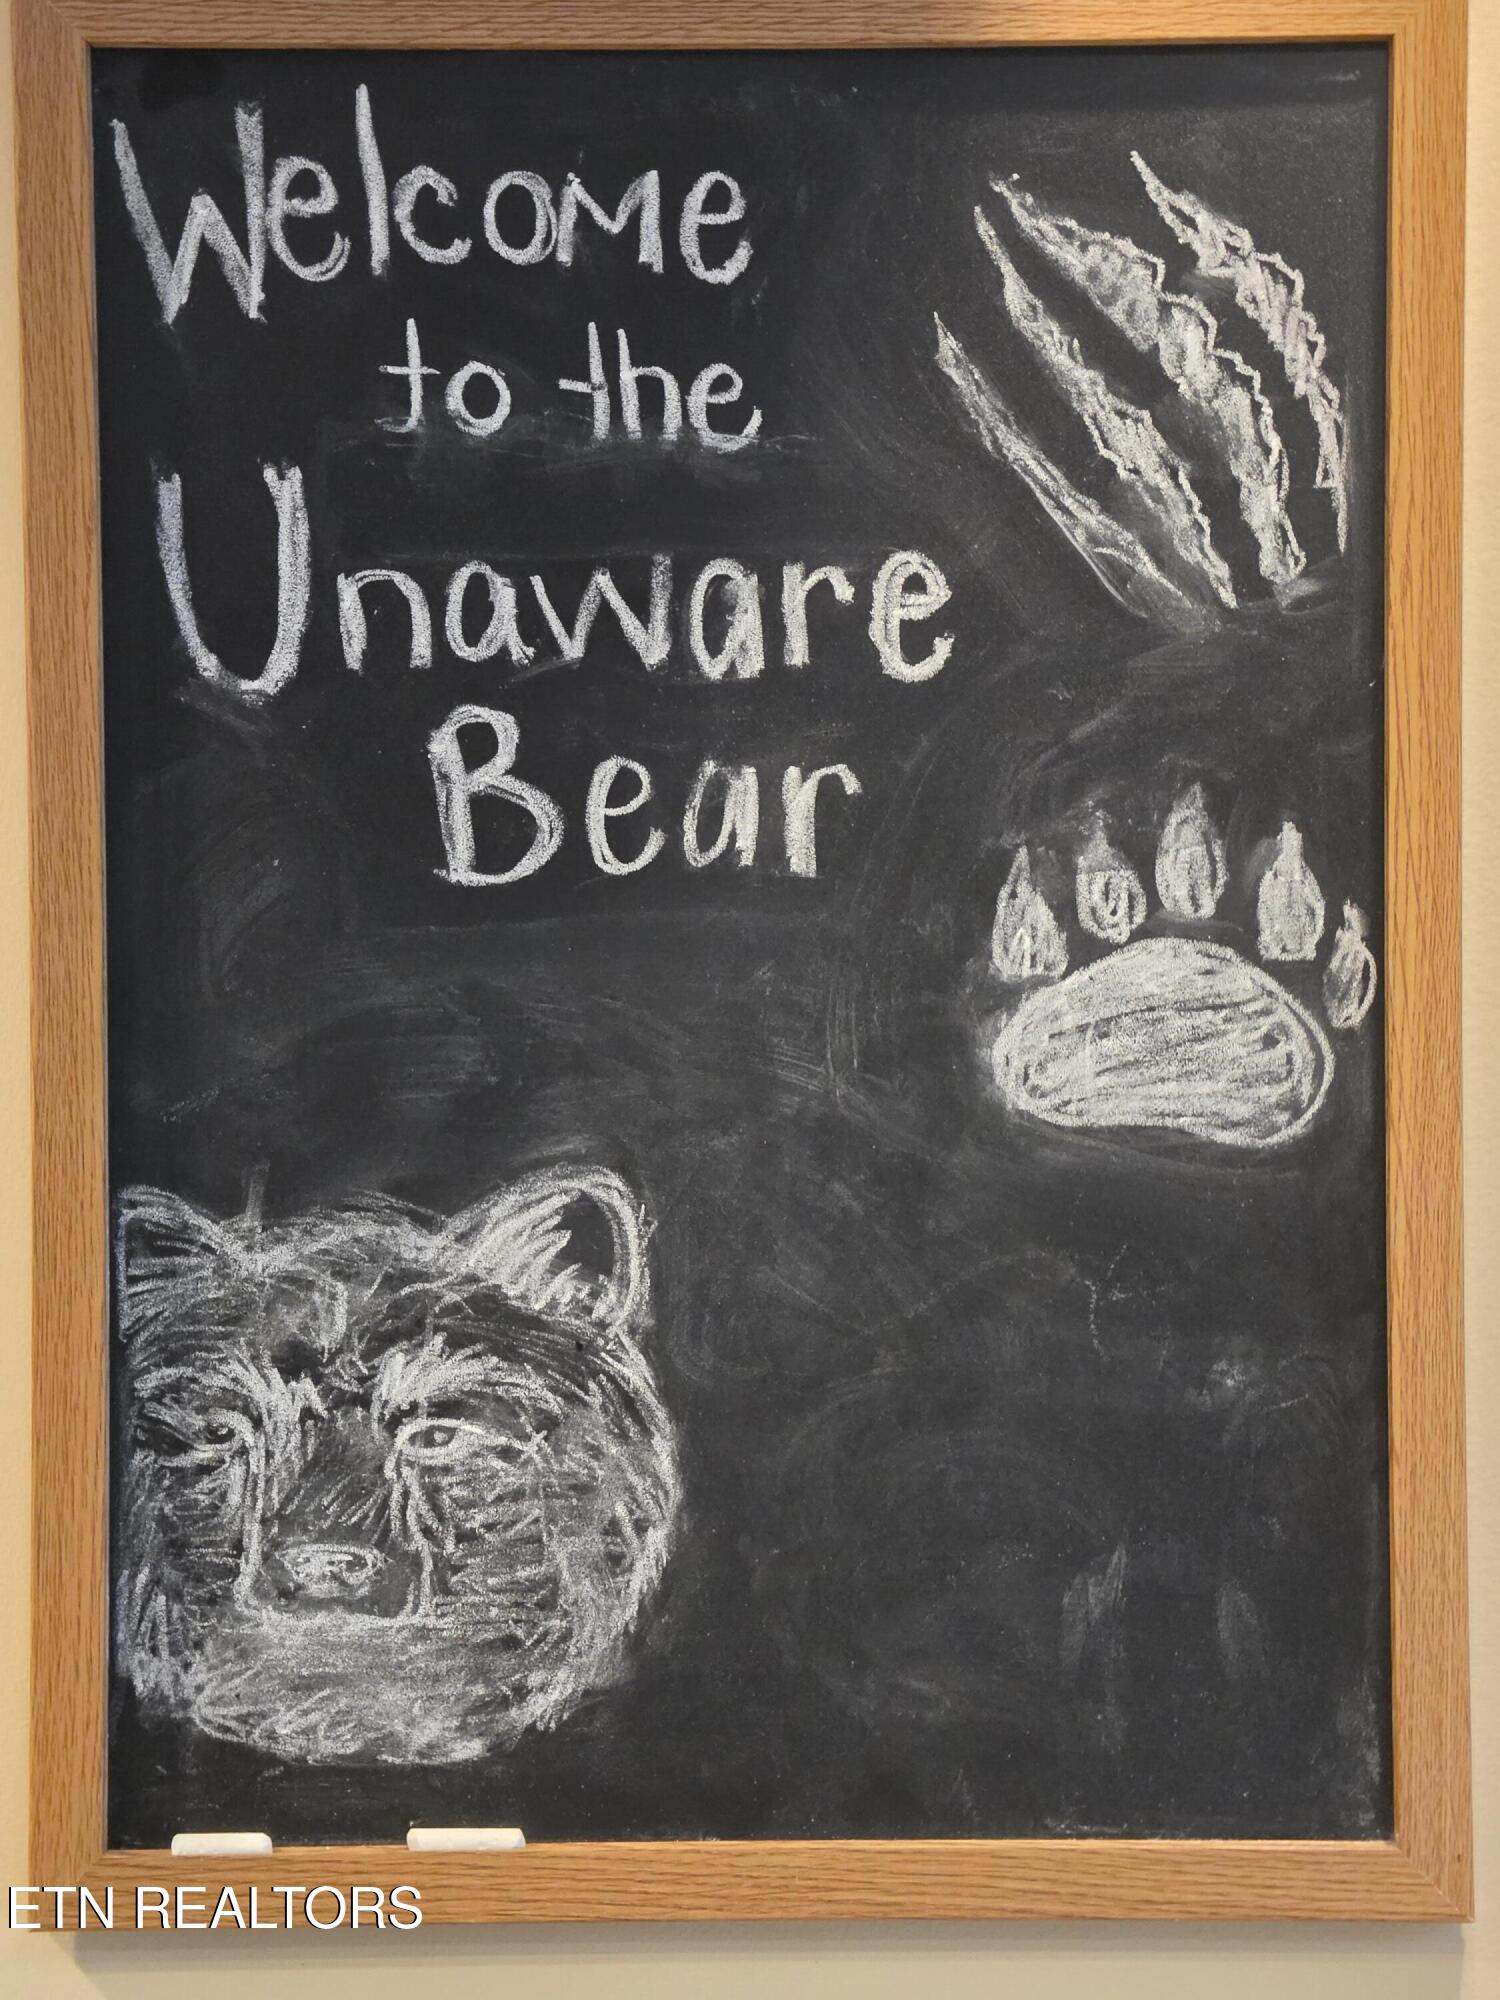 Welcome
to the
Unaware
Bear
ETN REALTORS